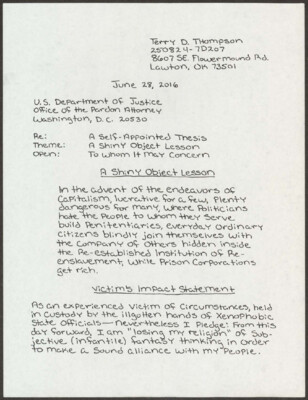 Terry D. Thompson
250824-7D207
8607 SE. Flowermound Rd.
Lawton, OK 73501
June 28, 2016
U.S. Department of Justice
Office of the Pardon Attorney
Washington, D.C. 20530
Re: A Self-Appointed Thesis
Theme: A Shiny Object Lesson
Open: To Whom It May Concern
A Shiny Object Lesson
In the advent of the endeavors of
Capitalism, lucrative for a few, Plenty
dangerous for many, where Politicians
hate the People to whom they Serve
build Penitentiaries, everyday Ordinary
citizens blindly join themselves with
the Company of Others hidden inside
the Re-established Institution of Re-
enslavement, While Prison Corporations
get rich.
Victim's Impact Statement
As an experienced victim of Circumstances, held
in Custody by the illgotten hands of Xenophobic
State Officials—nevertheless I Pledge: From this
day forward, I am "losing my religion" of Sub-
jective (Infantile) fantasy thinking in Order
to make a Sound alliance with my People.